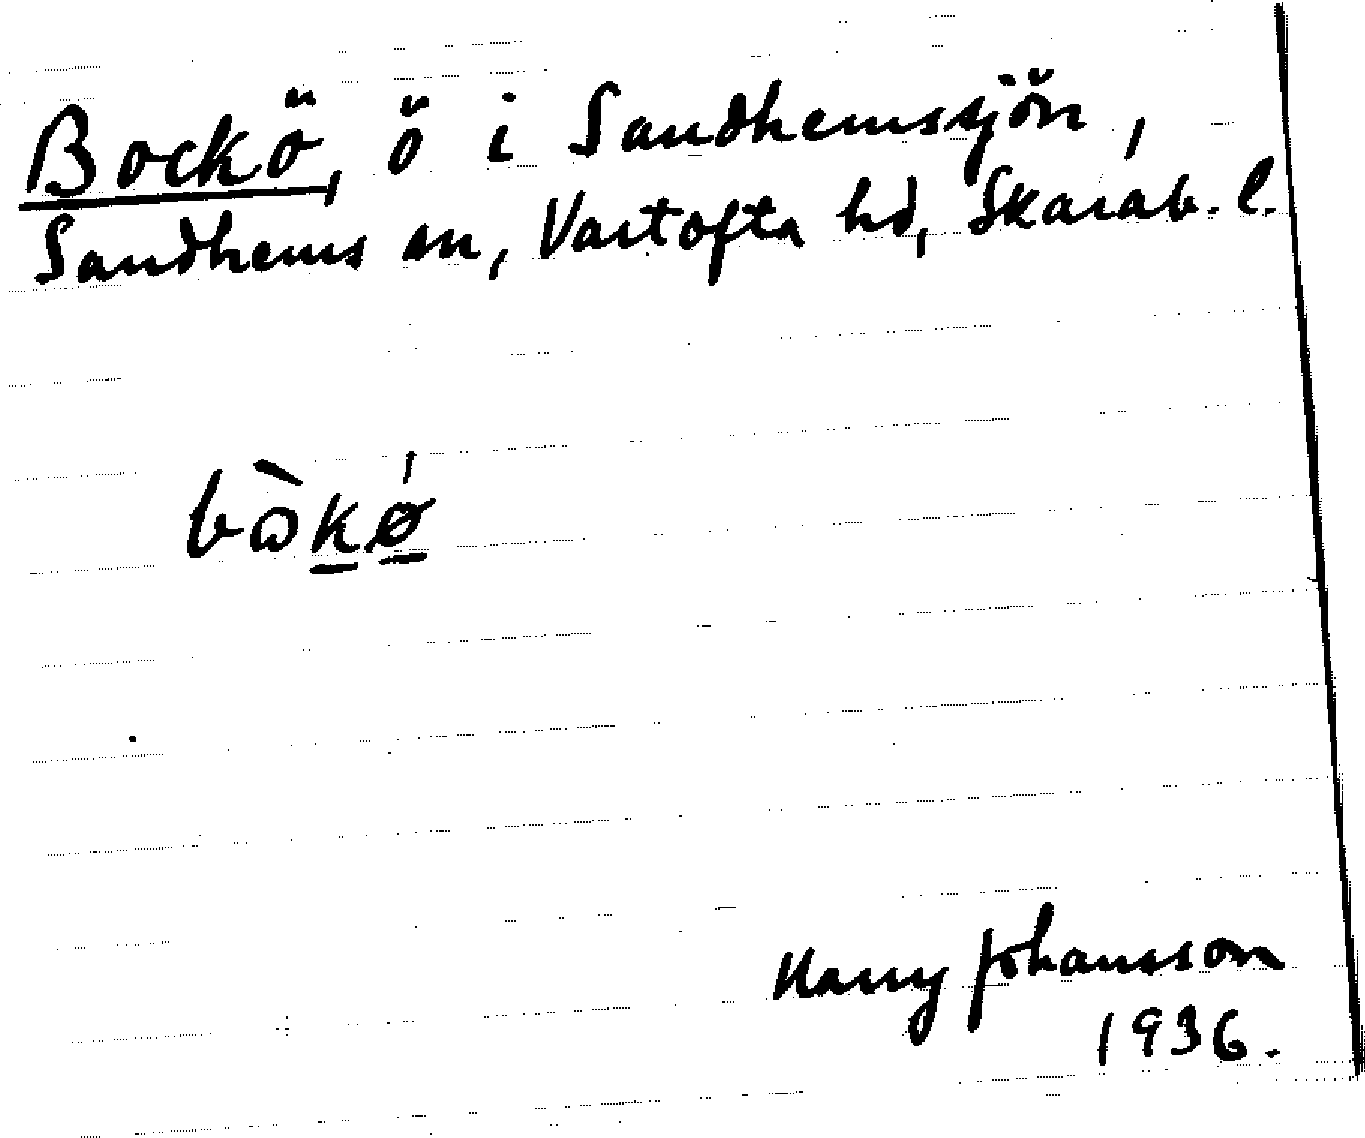 Bockö, ö i Sandhemssjön,
Sandhems sn, Vartofta hd, Skarab. l.
bòkǿ
Harry Johansson
1936.